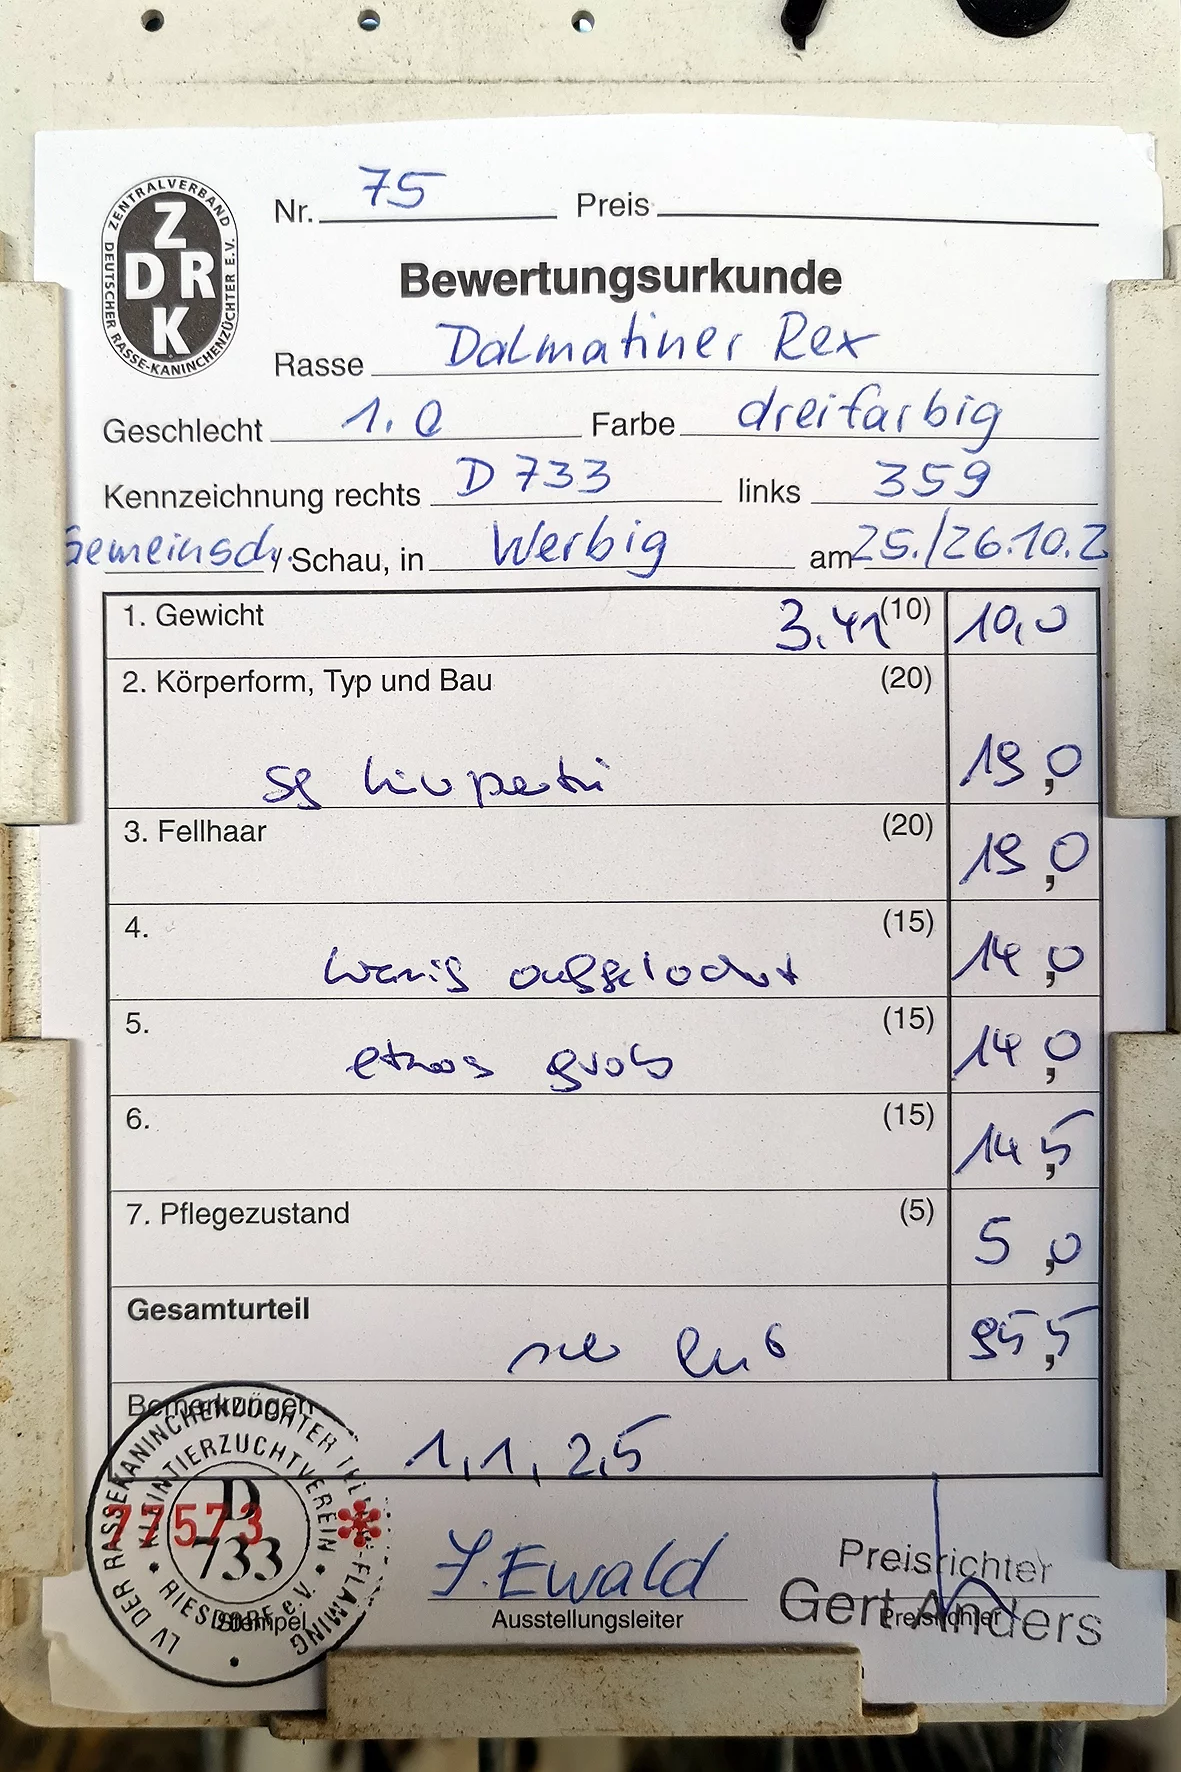 ZENTRALVERBAND
DEUTSCHER RASSE-KANINCHENZÜCHTER E.V.
Z
DR
K
Nr. 75 Preis
Bewertungsurkunde
Rasse Dalmatiner Rex
Geschlecht 1.0 Farbe dreifarbig
Kennzeichnung rechts D 733 links 359
Gemeinsch. / Schau, in Werbig am 25./26.10.2
1. Gewicht 3.41 (10) 10,0
2. Körperform, Typ und Bau (20)
sg 19,0
3. Fellhaar (20) 19,0
4. (15)
wenig aufgelockert 14,0
5. (15)
etwas grob 14,0
6. (15) 14,5
7. Pflegezustand (5) 5,0
Gesamturteil
95,5
Bemerkungen
1,1, 2,5
LV DER RASSEKANINCHENZÜCHTER -FLÄMING
KLEINTIERZUCHTVEREIN
RIESDORF e.V.
D
733
77573
Stempel
J. Ewald
Ausstellungsleiter
Preisrichter
Gert Anders
Preisrichter